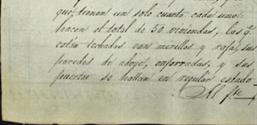 que forman un solo cuarto cada una
hacen el total de 30 viviendas, las q.
estan techadas unas morillos y rajas, sus
paredes de adoves, enjarradas, y sus
puertas se hallan en regular estado
Al fte